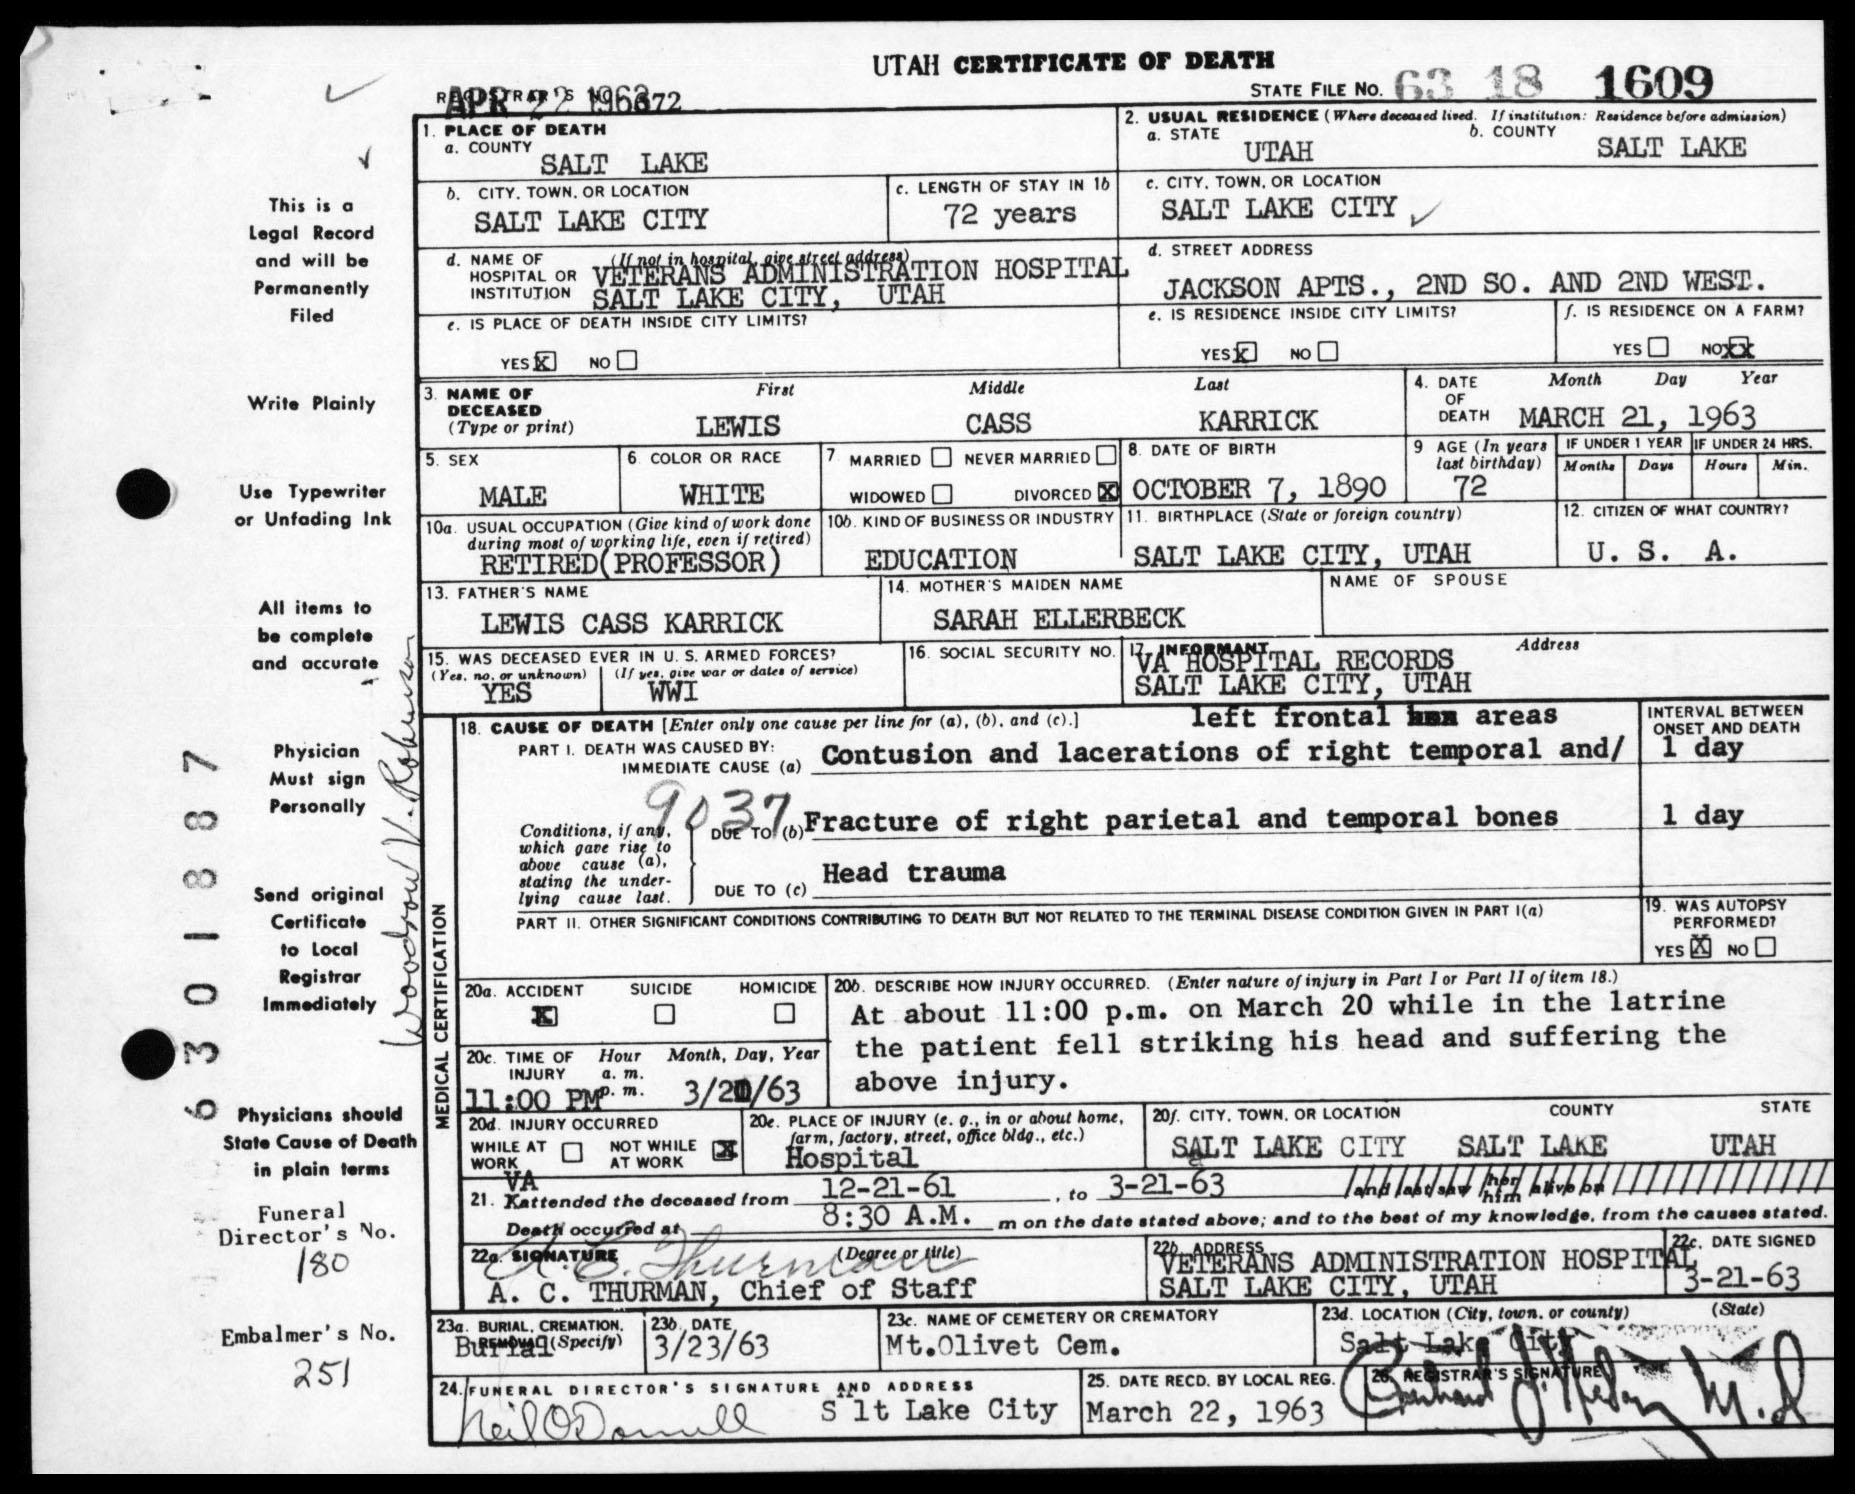 UTAH CERTIFICATE OF DEATH
APR 22 1963
STATE FILE NO. 63 18 1609
1. PLACE OF DEATH
a. COUNTY
SALT LAKE
2. USUAL RESIDENCE (Where deceased lived. If institution: Residence before admission)
a. STATE
UTAH
b. COUNTY
SALT LAKE
b. CITY, TOWN, OR LOCATION
SALT LAKE CITY
c. LENGTH OF STAY IN 1b
72 years
c. CITY, TOWN, OR LOCATION
SALT LAKE CITY
d. NAME OF HOSPITAL OR INSTITUTION
(If not in hospital, give street address)
VETERANS ADMINISTRATION HOSPITAL
SALT LAKE CITY, UTAH
d. STREET ADDRESS
JACKSON APTS., 2ND SO. AND 2ND WEST.
e. IS PLACE OF DEATH INSIDE CITY LIMITS?
YES X NO
e. IS RESIDENCE INSIDE CITY LIMITS?
YES X NO
f. IS RESIDENCE ON A FARM?
YES NO XX
3. NAME OF DECEASED
(Type or print)
First
LEWIS
Middle
CASS
Last
KARRICK
4. DATE OF DEATH
Month Day Year
MARCH 21, 1963
5. SEX
MALE
6. COLOR OR RACE
WHITE
7. MARRIED NEVER MARRIED
WIDOWED DIVORCED X
8. DATE OF BIRTH
OCTOBER 7, 1890
9 AGE (In years last birthday)
72
IF UNDER 1 YEAR
Months Days
IF UNDER 24 HRS.
Hours Min.
10a. USUAL OCCUPATION (Give kind of work done
during most of working life, even if retired)
RETIRED(PROFESSOR)
10b. KIND OF BUSINESS OR INDUSTRY
EDUCATION
11. BIRTHPLACE (State or foreign country)
SALT LAKE CITY, UTAH
12. CITIZEN OF WHAT COUNTRY?
U. S. A.
13. FATHER'S NAME
LEWIS CASS KARRICK
14. MOTHER'S MAIDEN NAME
SARAH ELLERBECK
NAME OF SPOUSE
15. WAS DECEASED EVER IN U. S. ARMED FORCES?
(Yes, no, or unknown)
YES
(If yes, give war or dates of service)
WWI
16. SOCIAL SECURITY NO.
17. INFORMANT Address
VA HOSPITAL RECORDS
SALT LAKE CITY, UTAH
MEDICAL CERTIFICATION
18. CAUSE OF DEATH [Enter only one cause per line for (a), (b), and (c).]
PART I. DEATH WAS CAUSED BY:
IMMEDIATE CAUSE (a)
left frontal areas
Contusion and lacerations of right temporal and/
INTERVAL BETWEEN
ONSET AND DEATH
1 day
9037
Conditions, if any,
which gave rise to
above cause (a),
stating the under-
lying cause last.
DUE TO (b) Fracture of right parietal and temporal bones
1 day
DUE TO (c) Head trauma
PART II. OTHER SIGNIFICANT CONDITIONS CONTRIBUTING TO DEATH BUT NOT RELATED TO THE TERMINAL DISEASE CONDITION GIVEN IN PART I(a)
19. WAS AUTOPSY
PERFORMED?
YES X NO
20a. ACCIDENT SUICIDE HOMICIDE
X
20b. DESCRIBE HOW INJURY OCCURRED. (Enter nature of injury in Part I or Part II of item 18.)
At about 11:00 p.m. on March 20 while in the latrine
the patient fell striking his head and suffering the
above injury.
20c. TIME OF INJURY
Hour Month, Day, Year
a. m.
p. m.
11:00 PM
20d. INJURY OCCURRED
WHILE AT WORK NOT WHILE AT WORK X
20e. PLACE OF INJURY (e. g., in or about home,
farm, factory, street, office bldg., etc.)
Hospital
20f. CITY, TOWN, OR LOCATION COUNTY STATE
SALT LAKE CITY SALT LAKE UTAH
VA
21. I attended the deceased from 12-21-61, to 3-21-63 and last saw her him alive on
Death occurred at 8:30 A.M. m on the date stated above; and to the best of my knowledge, from the causes stated.
22a. SIGNATURE (Degree or title)
A. C. Thurman
A. C. THURMAN, Chief of Staff
22b. ADDRESS
VETERANS ADMINISTRATION HOSPITAL
SALT LAKE CITY, UTAH
22c. DATE SIGNED
3-21-63
23a. BURIAL, CREMATION,
REMOVAL (Specify)
Burial
23b. DATE
3/23/63
23c. NAME OF CEMETERY OR CREMATORY
Mt.Olivet Cem.
23d. LOCATION (City, town, or county) (State)
Salt Lake City
24. FUNERAL DIRECTOR'S SIGNATURE AND ADDRESS
Neil O'Donnell
S lt Lake City
25. DATE RECD. BY LOCAL REG.
March 22, 1963
26. REGISTRAR'S SIGNATURE
M.D
This is a
Legal Record
and will be
Permanently
Filed
Write Plainly
Use Typewriter
or Unfading Ink
All items to
be complete
and accurate
Physician
Must sign
Personally
Send original
Certificate
to Local
Registrar
Immediately
Physicians should
State Cause of Death
in plain terms
Funeral
Director's No.
180
Embalmer's No.
251
6301887
Woodrow V. Robinson